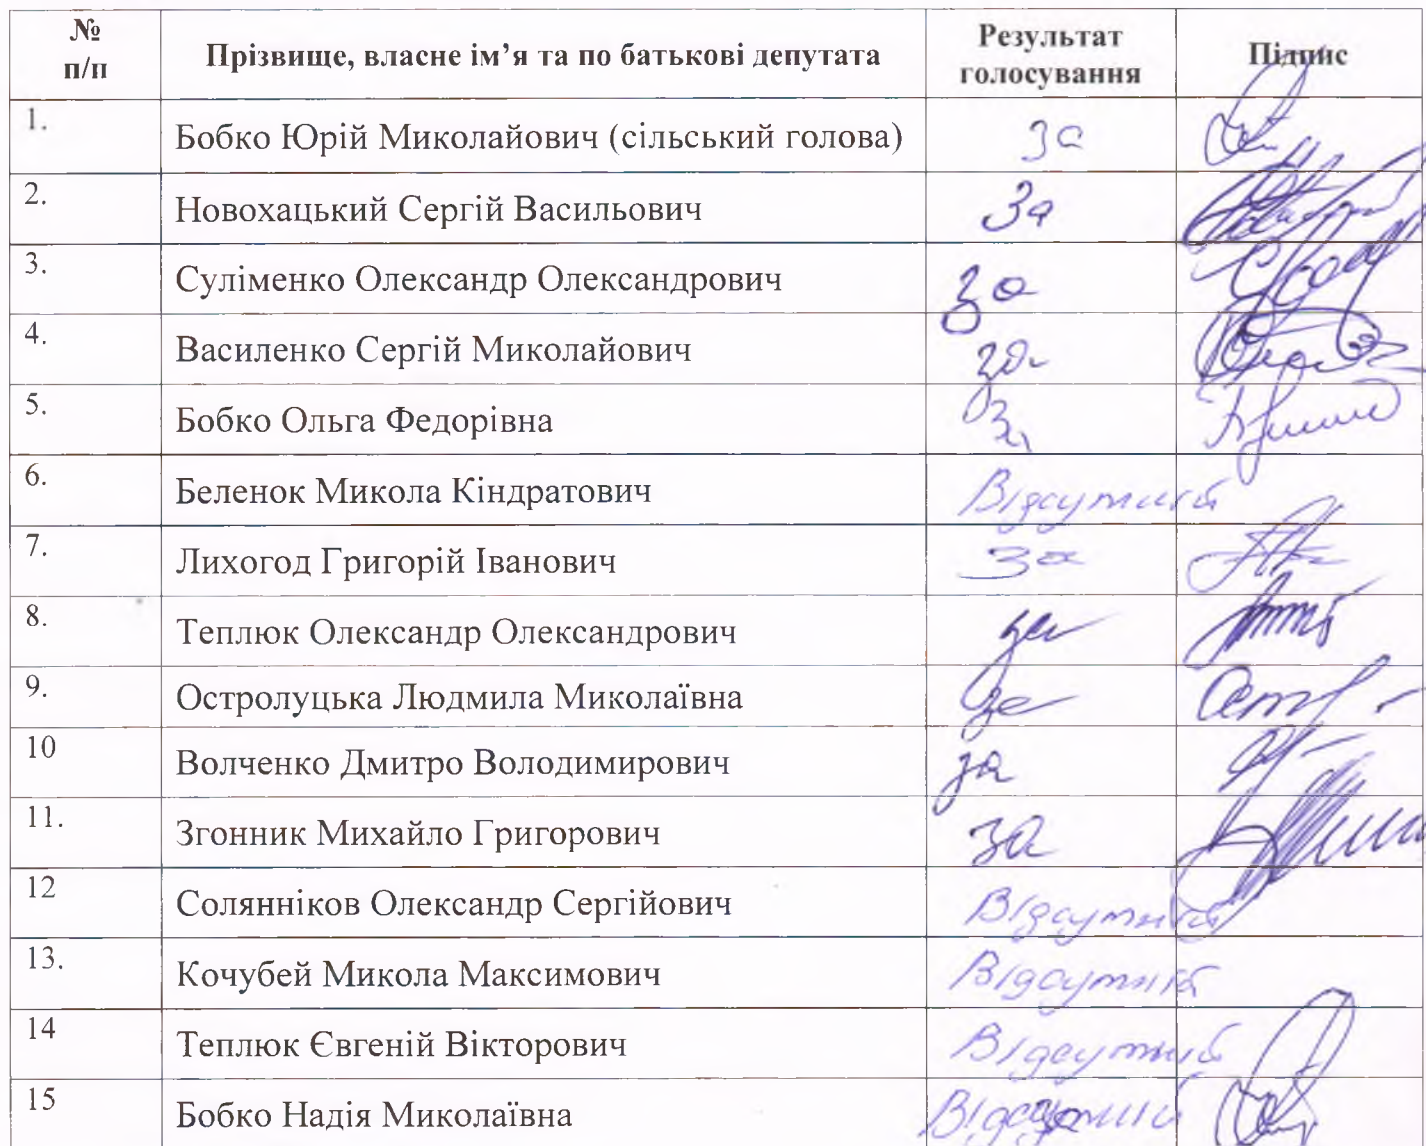 № п/п Прізвище, власне ім’я та по батькові депутата Результат голосування Підпис
1. Бобко Юрій Миколайович (сільський голова) за
2. Новохацький Сергій Васильович За
3. Суліменко Олександр Олександрович за
4. Василенко Сергій Миколайович за
5. Бобко Ольга Федорівна За
6. Беленок Микола Кіндратович Відсутній
7. Лихогод Григорій Іванович За
8. Теплюк Олександр Олександрович за
9. Остролуцька Людмила Миколаївна за
10 Волченко Дмитро Володимирович за
11. Згонник Михайло Григорович за
12 Солянніков Олександр Сергійович Відсутній
13. Кочубей Микола Максимович Відсутній
14 Теплюк Євгеній Вікторович Відсутній
15 Бобко Надія Миколаївна Відсутній